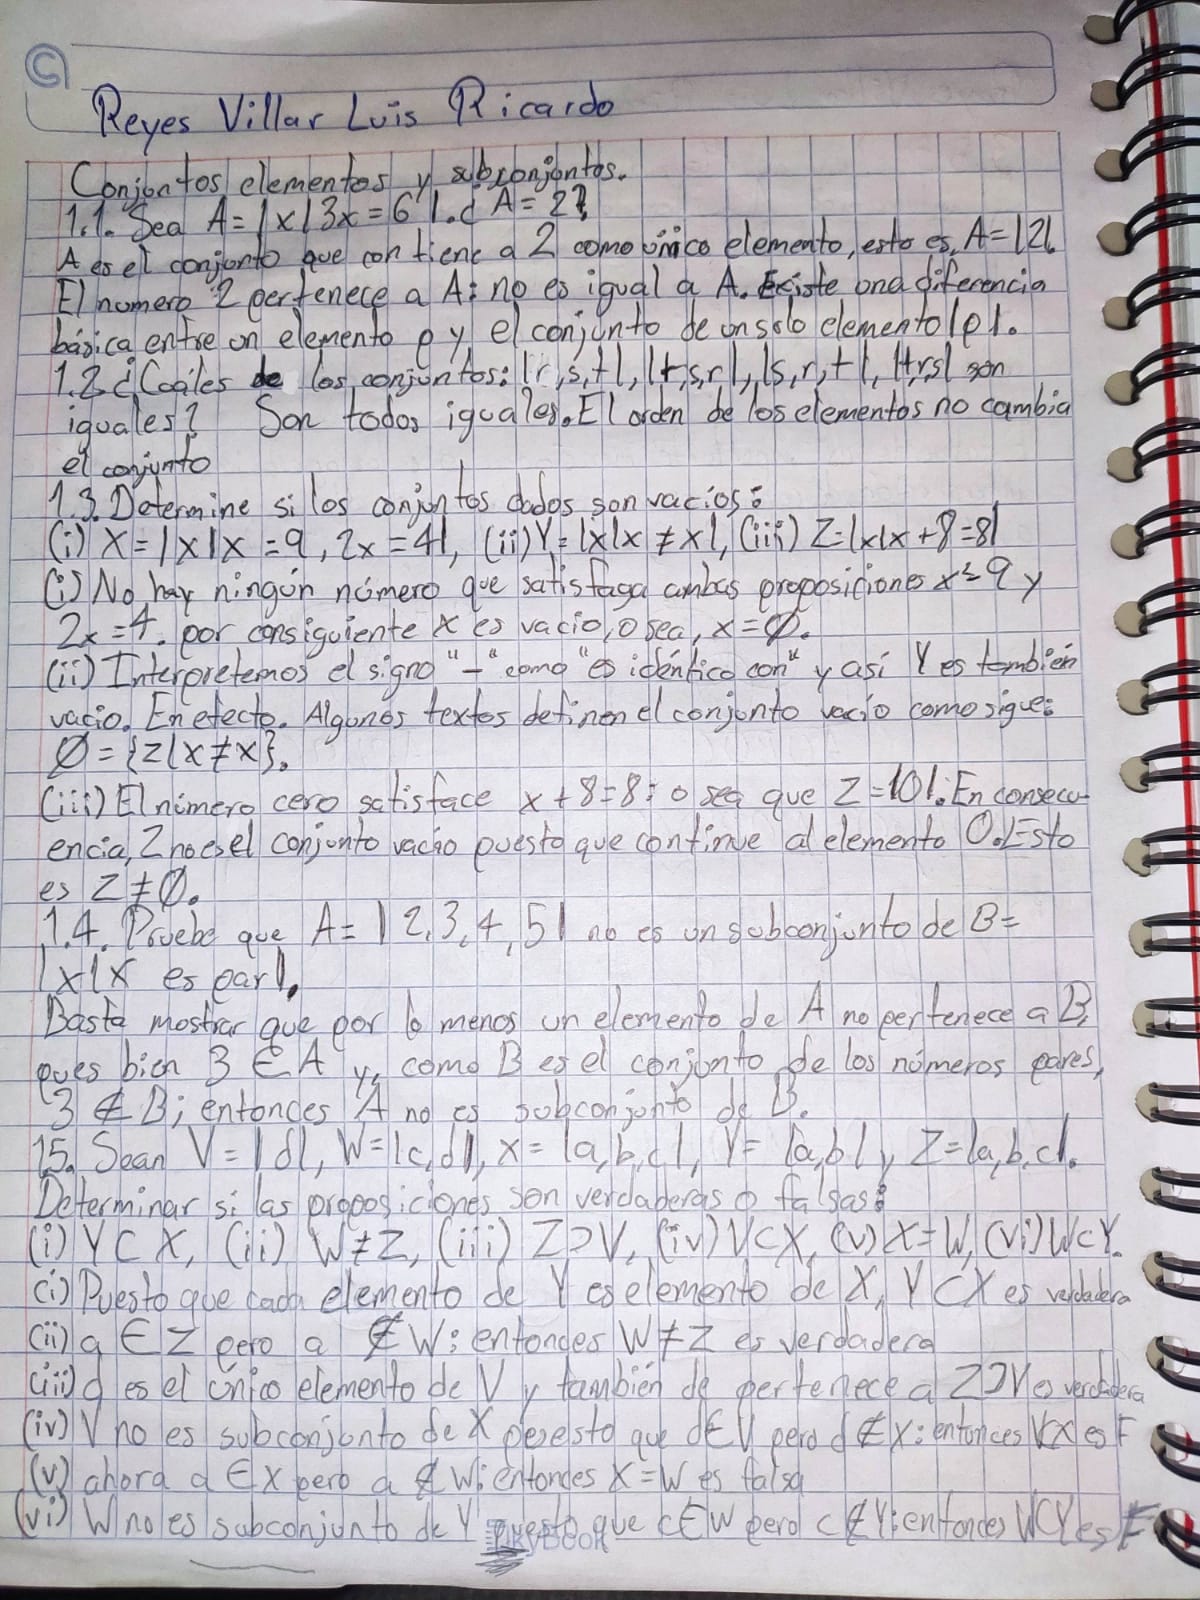 Reyes Villar Luis Ricardo
Conjuntos elementos y subconjuntos.
1.1. Sea A = |x|3x = 6|. ¿ A = 2?
A es el conjunto que contiene a 2 como único elemento, esto es, A = |2|.
El numero 2 pertenece a A; no es igual a A. Existe una diferencia
básica entre un elemento p y el conjunto de un solo elemento |p|.
1.2 ¿Cuales de los conjuntos: |r,s,t|, |t,s,r|, |s,r,t|, |t,r,s| son
iguales? Son todos iguales. El orden de los elementos no cambia
el conjunto
1.3. Determine si los conjuntos dados son vacios:
(i) X = |x|x² = 9, 2x = 4|, (ii) Y = |x|x ≠ x|, (iii) Z = |x|x + 8 = 8|
(i) No hay ningún número que satisfaga ambas proposiciones x² = 9 y
2x = 4. por consiguiente X es vacio, o sea, x = Ø.
(ii) Interpretemos el signo "–" como "es idéntico con" y así Y es también
vacio. En efecto. Algunos textos definen el conjunto vacío como sigue:
Ø = {Z|x ≠ x}.
(iii) El número cero satisface x + 8 = 8; o sea que Z = |0|. En consecu-
encia, Z no es el conjunto vacio puesto que continue al elemento 0. Esto
es Z ≠ Ø.
1.4. Pruebe que A = |2,3,4,5| no es un subconjunto de B =
|x|x es par|.
Basta mostrar que por lo menos un elemento de A no pertenece a B,
pues bien 3 ∈ A y, como B es el conjunto de los números pares,
3 ∉ B; entonces A no es subconjunto de B.
1.5. Sean V = |d|, W = |c,d|, X = |a,b,c|, Y = |a,b| y Z = |a,b,d|.
Determinar si las proposiciones son verdaderas o falsas:
(i) Y ⊂ X, (ii) W ≠ Z, (iii) Z ⊃ V, (iv) V ⊂ X, (v) X = W, (vi) W ⊂ Y.
(i) Puesto que cada elemento de Y es elemento de X, Y ⊂ X es verdadera
(ii) a ∈ Z pero a ∉ W; entonces W ≠ Z es verdadera
(iii) d es el único elemento de V y también de pertenece a Z ⊃ V es verdadera
(iv) V no es subconjunto de X pesesto que d ∈ V pero d ∉ X; entonces V⊂X es F
(v) ahora a ∈ X pero a ∉ W; entondes X = W es falsa
(vi) W no es subconjunto de Y puesto que c ∈ W pero c ∉ Y; entonces W⊂Y es F